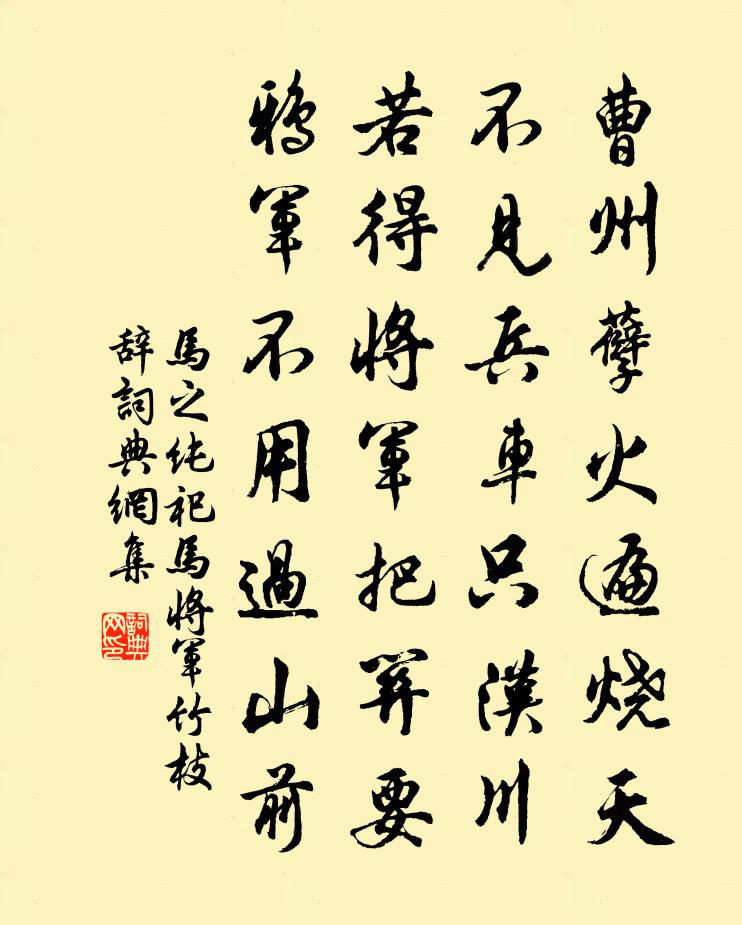 曹州孽火遍烧天
不见兵車只漢川
若得将軍把關要
鴉軍不用過山前
馬之纯祀馬将軍竹枝
辞詞典網集
詞典网印